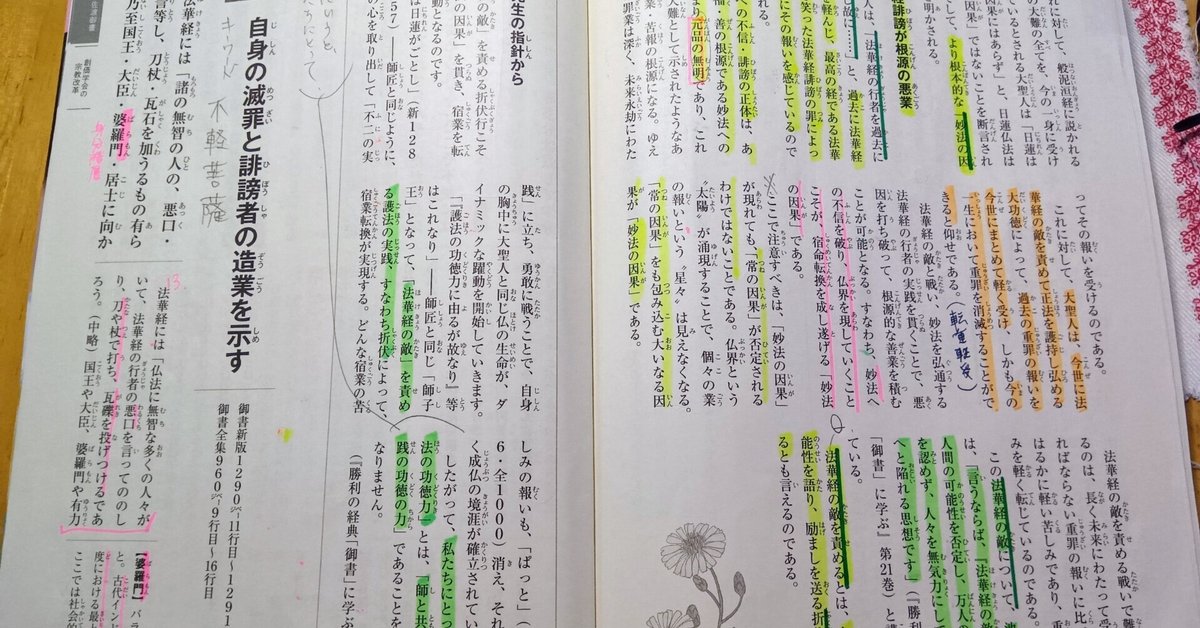 れに対して、般泥洹経に説かれる
の大難の全てを、今の一身に受け
ているとされる大聖人は「日蓮は
因果にはあらず」と、日蓮仏法は
因果」ではないことを断言され
して、より根本的な「妙法の因
明かされる。
経誹謗が根源の悪業
人は、「法華経の行者を過去に
故……」と、過去に法華経
軽んじ、最高の経である法華
笑った法華経誹謗の罪によっ
の報いを感じているので
への不信、誹謗の正体は、あ
福・善の根源である妙法への
元品の無明」であり、これ
業・苦報の根源になる。ゆえ
難として示されたようなあ
罪業は深く、未来永劫にわた
ってその報いを受けるのである。
これに対して、大聖人は、今世に法
華経の敵を責めて正法を護持し弘める
大功徳によって、過去の重罪の報いを
今世にまとめて軽く受け、しかも今の
一生において重罪を消滅することがで
きると仰せである。(転重軽受)
法華経の敵と戦い、妙法を弘通する
法華経の行者の実践を貫くことで、悪
因を打ち破って、根源的な善業を積む
ことが可能となる。すなわち、妙法へ
の不信を破り、仏界を現していくこと
こそが、宿命転換を成し遂げる「妙法
の因果」である。
ここで注意すべきは、「妙法の因果」
が現れても、「常の因果」が否定される
わけではないことである。仏界という
〝太陽〟が涌現することで、個々の業
の報いという〝星々〟は見えなくなる。
「常の因果」をも包み込む大いなる因
果が「妙法の因果」である。
法華経の敵を責める戦いで難
るのは、長く未来にわたって受
ればならない重罪の報いに比
はるかに軽い苦しみであり、重
みを軽く転じているのである。
この法華経の敵について、池
は、「言うならば、『法華経の敵
人間の可能性を否定し、万人の
を認めず、人々を無気力にして
へと陥れる思想です」(『勝利
「御書」に学ぶ』第21巻)と
ている。
法華経の敵を責めるとは、
能性を語り、励ましを送る折
るとも言えるのである。
生の指針から
の敵」を責める折伏行こそ
の因果」を貫き、宿業を転
動となるのです。
は日蓮がごとし」(新128
57)――師匠と同じように、
の心を取り出して「不二の実
践」に立ち、勇敢に戦うことで、自身
の胸中に大聖人と同じ仏の生命が、ダ
イナミックな躍動を開始していきます。
「『護法の功徳力に由るが故なり』等
はこれなり」――師匠と同じ「師子
王」となって、「法華経の敵」を責め
る護法の実践、すなわち折伏によって、
宿業転換が実現する。どんな宿業の苦
しみの報いも、「ぱっと」(
6・全1000)消え、それ
く成仏の境涯が確立されてい
したがって、私たちにとっ
法の功徳力」とは、「師と共
践の功徳の力」であることを
なりません。
(『勝利の経典「御書」に学ぶ
キーワード
不軽菩薩
自身の滅罪と誹謗者の造業を示す
御書新版1290ページ11行目〜1291
御書全集960ページ9行目〜16行目
佐渡御書
創価学会の
宗教改革
法華経には「諸の無智の人の、悪口・
言等し、刀杖・瓦石を加うるもの有ら
乃至国王・大臣・婆羅門・居士に向か
13
法華経には「仏法に無智な多くの人々が
いて、法華経の行者の悪口を言ってののし
り、刀や杖で打ち、瓦礫を投げつけるであ
ろう。(中略)国王や大臣、婆羅門や有力
【婆羅門】バラ
と。古代イン
度における最上
ここでは社会的